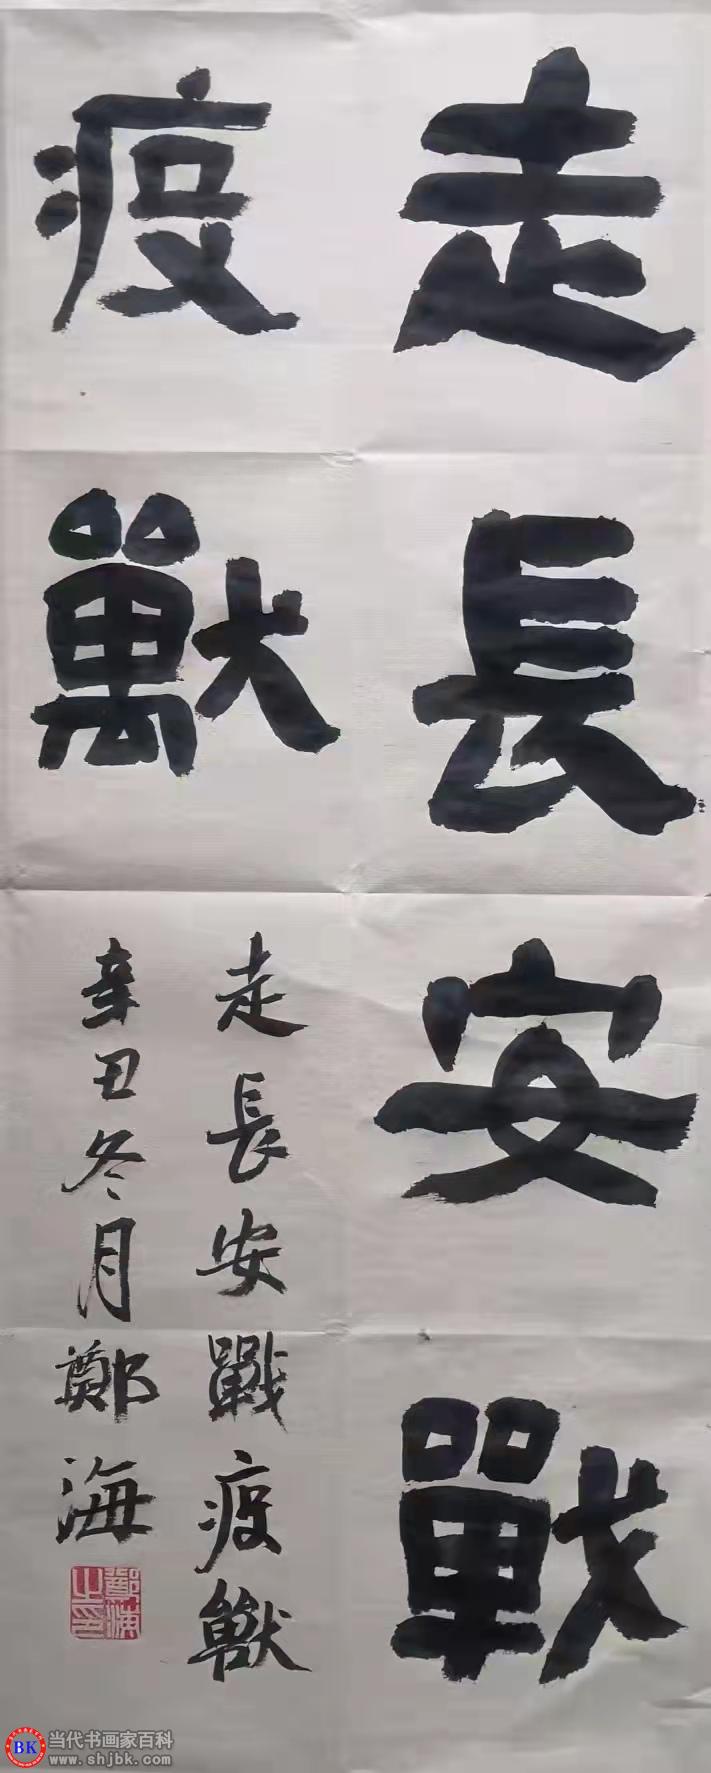 走長安戰
疫獸
走長安戰疫獸
辛丑冬月鄭海
鄭海之印
BK 当代书画家百科
www.shjbk.com